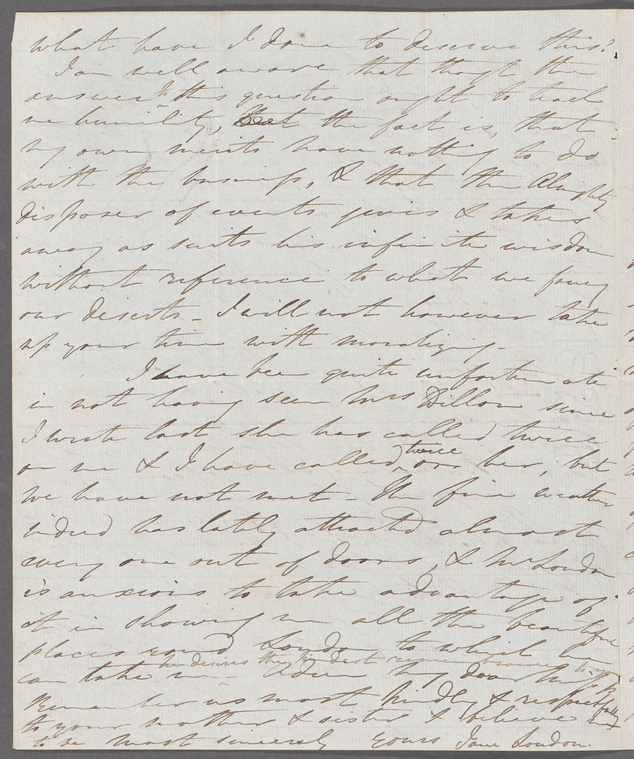 what have I done to deserve this?
I am well aware that though the
answer to this question ought to teach
me humility, that the fact is, that
my own merits have nothing to do
with the business, & that the Almighty
disposer of events gives & takes
away as suits his infinite wisdom
without reference to what we fancy
our deserts - I will not however take
up your time with moralizing -
I have been quite unfortunate
in not having seen Mrs Dillon since
I wrote last she has called twice
on me & I have called twice on her, but
we have not met - The fine weather
indeed has lately attracted almost
every one out of doors, & Mr Loudon
is anxious to take advantage of
it in showing me all the beautiful
places round London to which he
can take me - he desires his best
Adieu my dear
Remember us most kindly & respectfully
to your mother & sister & believe me
to be most sincerely yours Jane Loudon.